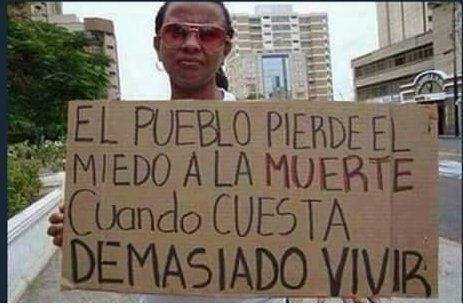 EL PUEBLO PIERDE EL
MIEDO A LA MUERTE
Cuando CUESTA
DEMASIADO VIVIR